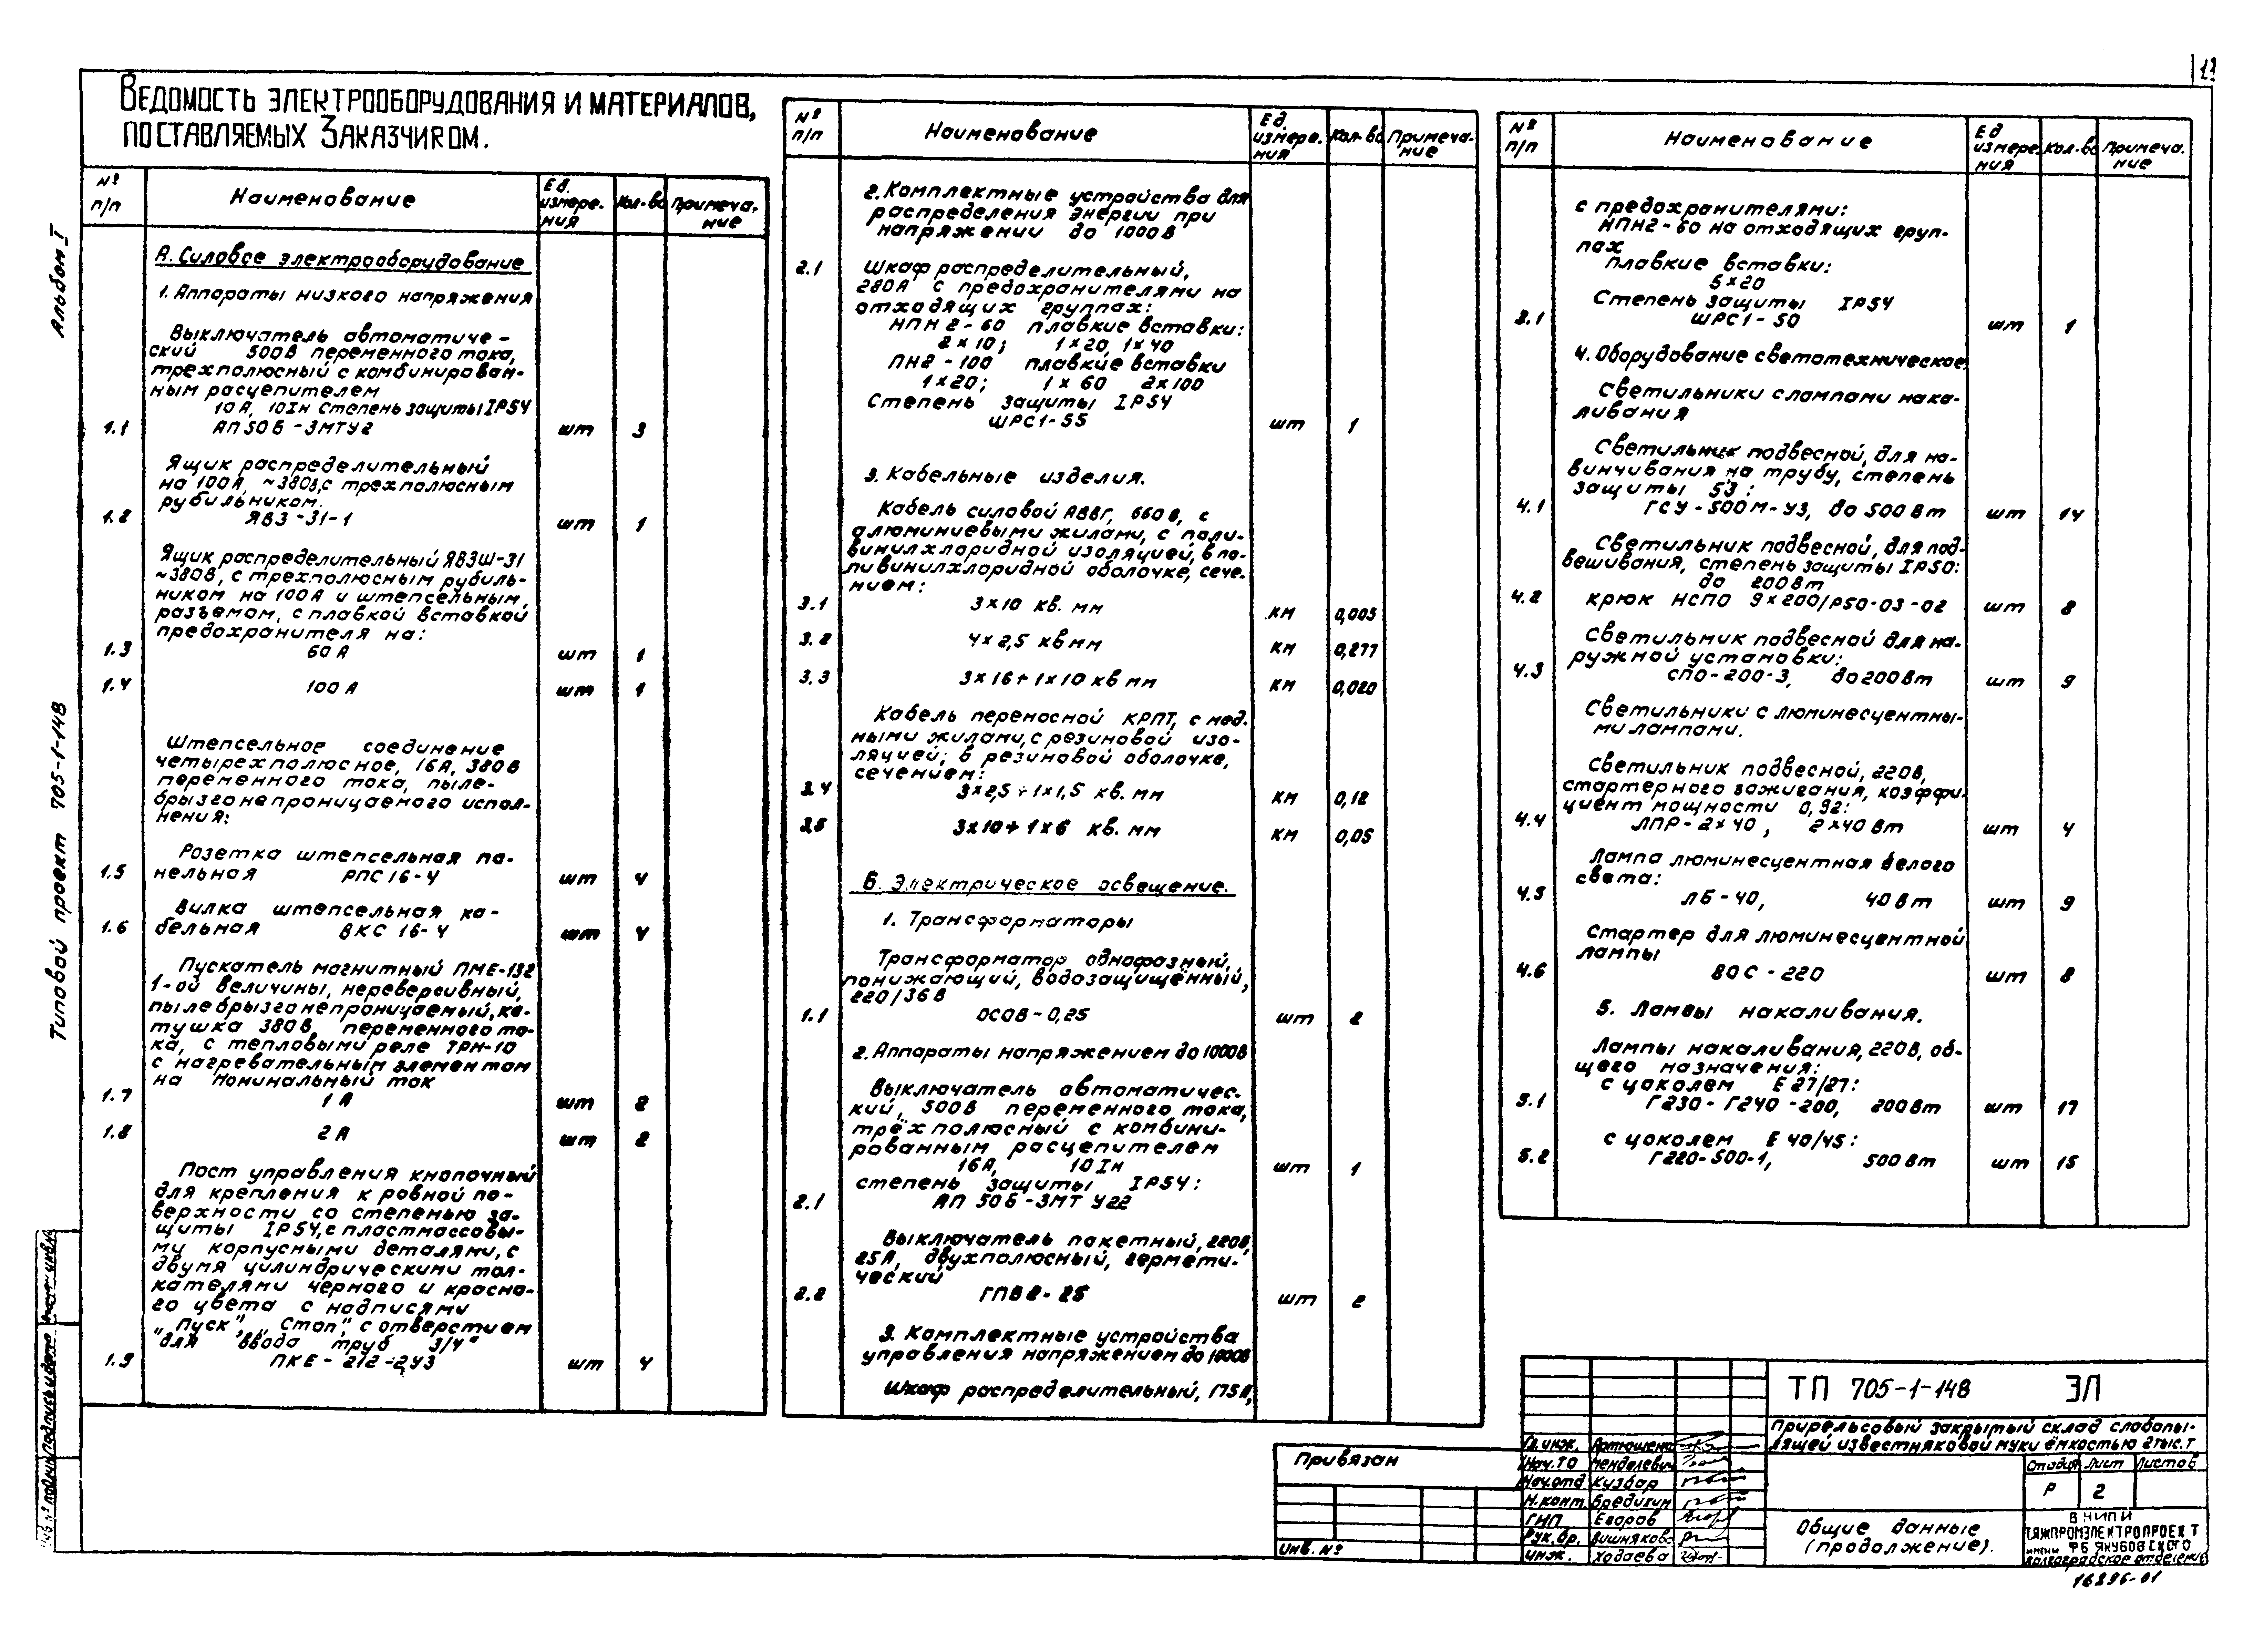 11
Альбом I
Типовой проект 705-1-148
Ведомость электрооборудования и материалов,
поставляемых Заказчиком.
№ п/п Наименование Ед. измере- ния Кол-во Примеча- ние
А. Силовое электрооборудование
1. Аппараты низкого напряжения
Выключатель автоматиче-
ский 500В переменного тока,
трехполюсный с комбинирован-
ным расцепителем
10А, 10Iн Степень защиты IP54
1.1 АП50Б-3МТУ2 шт 3
Ящик распределительный
на 100А, ~380В, с трехполюсным
рубильником.
1.2 ЯВЗ-31-1 шт 1
Ящик распределительный ЯВЗШ-31
~380В, с трехполюсным рубиль-
ником на 100А и штепсельным
разъемом, с плавкой вставкой
предохранителя на:
1.3 60А шт 1
1.4 100А шт 1
Штепсельное соединение
четырехполюсное, 16А, 380В
переменного тока, пыле-
брызгонепроницаемого испол-
нения:
Розетка штепсельная па-
1.5 нельная РПС16-4 шт 4
Вилка штепсельная ка-
1.6 бельная ВКС 16-4 шт 4
Пускатель магнитный ПМЕ-132
1-ой величины, нереверсивный,
пылебрызгонепроницаемый, ка-
тушка 380В, переменного то-
ка, с тепловыми реле ТРН-10
с нагревательным элементом
на номинальный ток
1.7 1А шт 2
1.8 2А шт 2
Пост управления кнопочный
для крепления к ровной по-
верхности со степенью за-
щиты IP54, с пластмассовы-
му корпусными деталями, с
двумя цилиндрическими тол-
кателями черного и красно-
го цвета с надписями
"Пуск", "Стоп", с отверстием
для ввода труб 3/4"
1.9 ПКЕ-212-2У3 шт 4
№ п/п Наименование Ед. измере- ния Кол-во Примеча- ние
2. Комплектные устройства для
распределения энергии при
напряжении до 1000В
2.1 Шкаф распределительный,
280А с предохранителями на
отходящих группах:
НПН2-60 плавкие вставки:
2×10; 1×20, 1×40
ПН2-100 плавкие вставки
1×20; 1×60 2×100
Степень защиты IP54
ШРС1-55 шт 1
3. Кабельные изделия.
Кабель силовой АВВГ, 660В, с
алюминиевыми жилами, с поли-
винилхлоридной изоляцией, в по-
ливинилхлоридной оболочке, сече-
нием:
3.1 3×10 кв. мм км 0,005
3.2 4×2,5 кв мм км 0,277
3.3 3×16+1×10 кв мм км 0,020
Кабель переносной КРПТ, с мед-
ными жилами, с резиновой изо-
ляцией, в резиновой оболочке,
сечением:
3.4 3×2,5+1×1,5 кв. мм км 0,12
3.5 3×10+1×6 кв. мм км 0,05
Б. Электрическое освещение.
1. Трансформаторы
Трансформатор однофазный,
понижающий, водозащищённый,
220/36В
1.1 ОСОВ-0,25 шт 2
2. Аппараты напряжением до 1000В
Выключатель автоматичес-
кий, 500В переменного тока,
трёхполюсный с комбини-
рованным расцепителем
16А, 10Iн шт 1
степень защиты IP54:
2.1 АП 50Б-3МТ У22
Выключатель пакетный, 220В,
25А, двухполюсный, гермети-
ческий
2.2 ГПВ2-25 шт 2
3. Комплектные устройства
управления напряжением до 1000В
Шкаф распределительный, 175А,
№ п/п Наименование Ед измере- ния Кол-во Примеча- ние
с предохранителями:
НПН2-60 на отходящих груп-
пах
плавкие вставки:
5×20
Степень защиты IP54
3.1 ШРС1-50 шт 1
4. Оборудование светотехническое.
Светильники с лампами нака-
ливания
Светильник подвесной, для на-
винчивания на трубу, степень
защиты 53:
4.1 ГСУ-500М-У3, до 500Вт шт 14
Светильник подвесной, для под-
вешивания, степень защиты IP50:
до 200Вт
4.2 крюк НСПО 9×200/Р50-03-02 шт 8
Светильник подвесной для на-
ружной установки:
4.3 СПО-200-3, до 200Вт шт 9
Светильники с люминесцентны-
ми лампами.
Светильник подвесной, 220В,
стартерного зажигания, коэффи-
циент мощности 0,92:
4.4 ЛПР-2×40, 2×40Вт шт 4
Лампа люминесцентная белого
света:
4.5 ЛБ-40, 40Вт шт 9
Стартер для люминесцентной
лампы
4.6 80С-220 шт 8
5. Лампы накаливания.
Лампы накаливания, 220В, об-
щего назначения:
с цоколем Е27/27:
5.1 Г230-Г240-200, 200Вт шт 17
с цоколем Е40/45:
5.2 Г220-500-1, 500Вт шт 15
Привязан
Инв. №
ТП 705-1-148 ЭЛ
Прирельсовый закрытый склад слабопы-
лящей известняковой муки ёмкостью 2тыс.т
Гл. инж. Артюшенко
Нач. ТО Менделевич
Нач. отд Кузбар
Н. конт. Бредихин
ГИП Егоров
Рук. бр. Вишнякова
инж. Ходаева
Стадия Лист Листов
Р 2
Общие данные
(продолжение).
ВНИПИ
ТЯЖПРОМЭЛЕКТРОПРОЕКТ
имени Ф Б ЯКУБОВСКОГО
Волгоградское отделение
16896-01